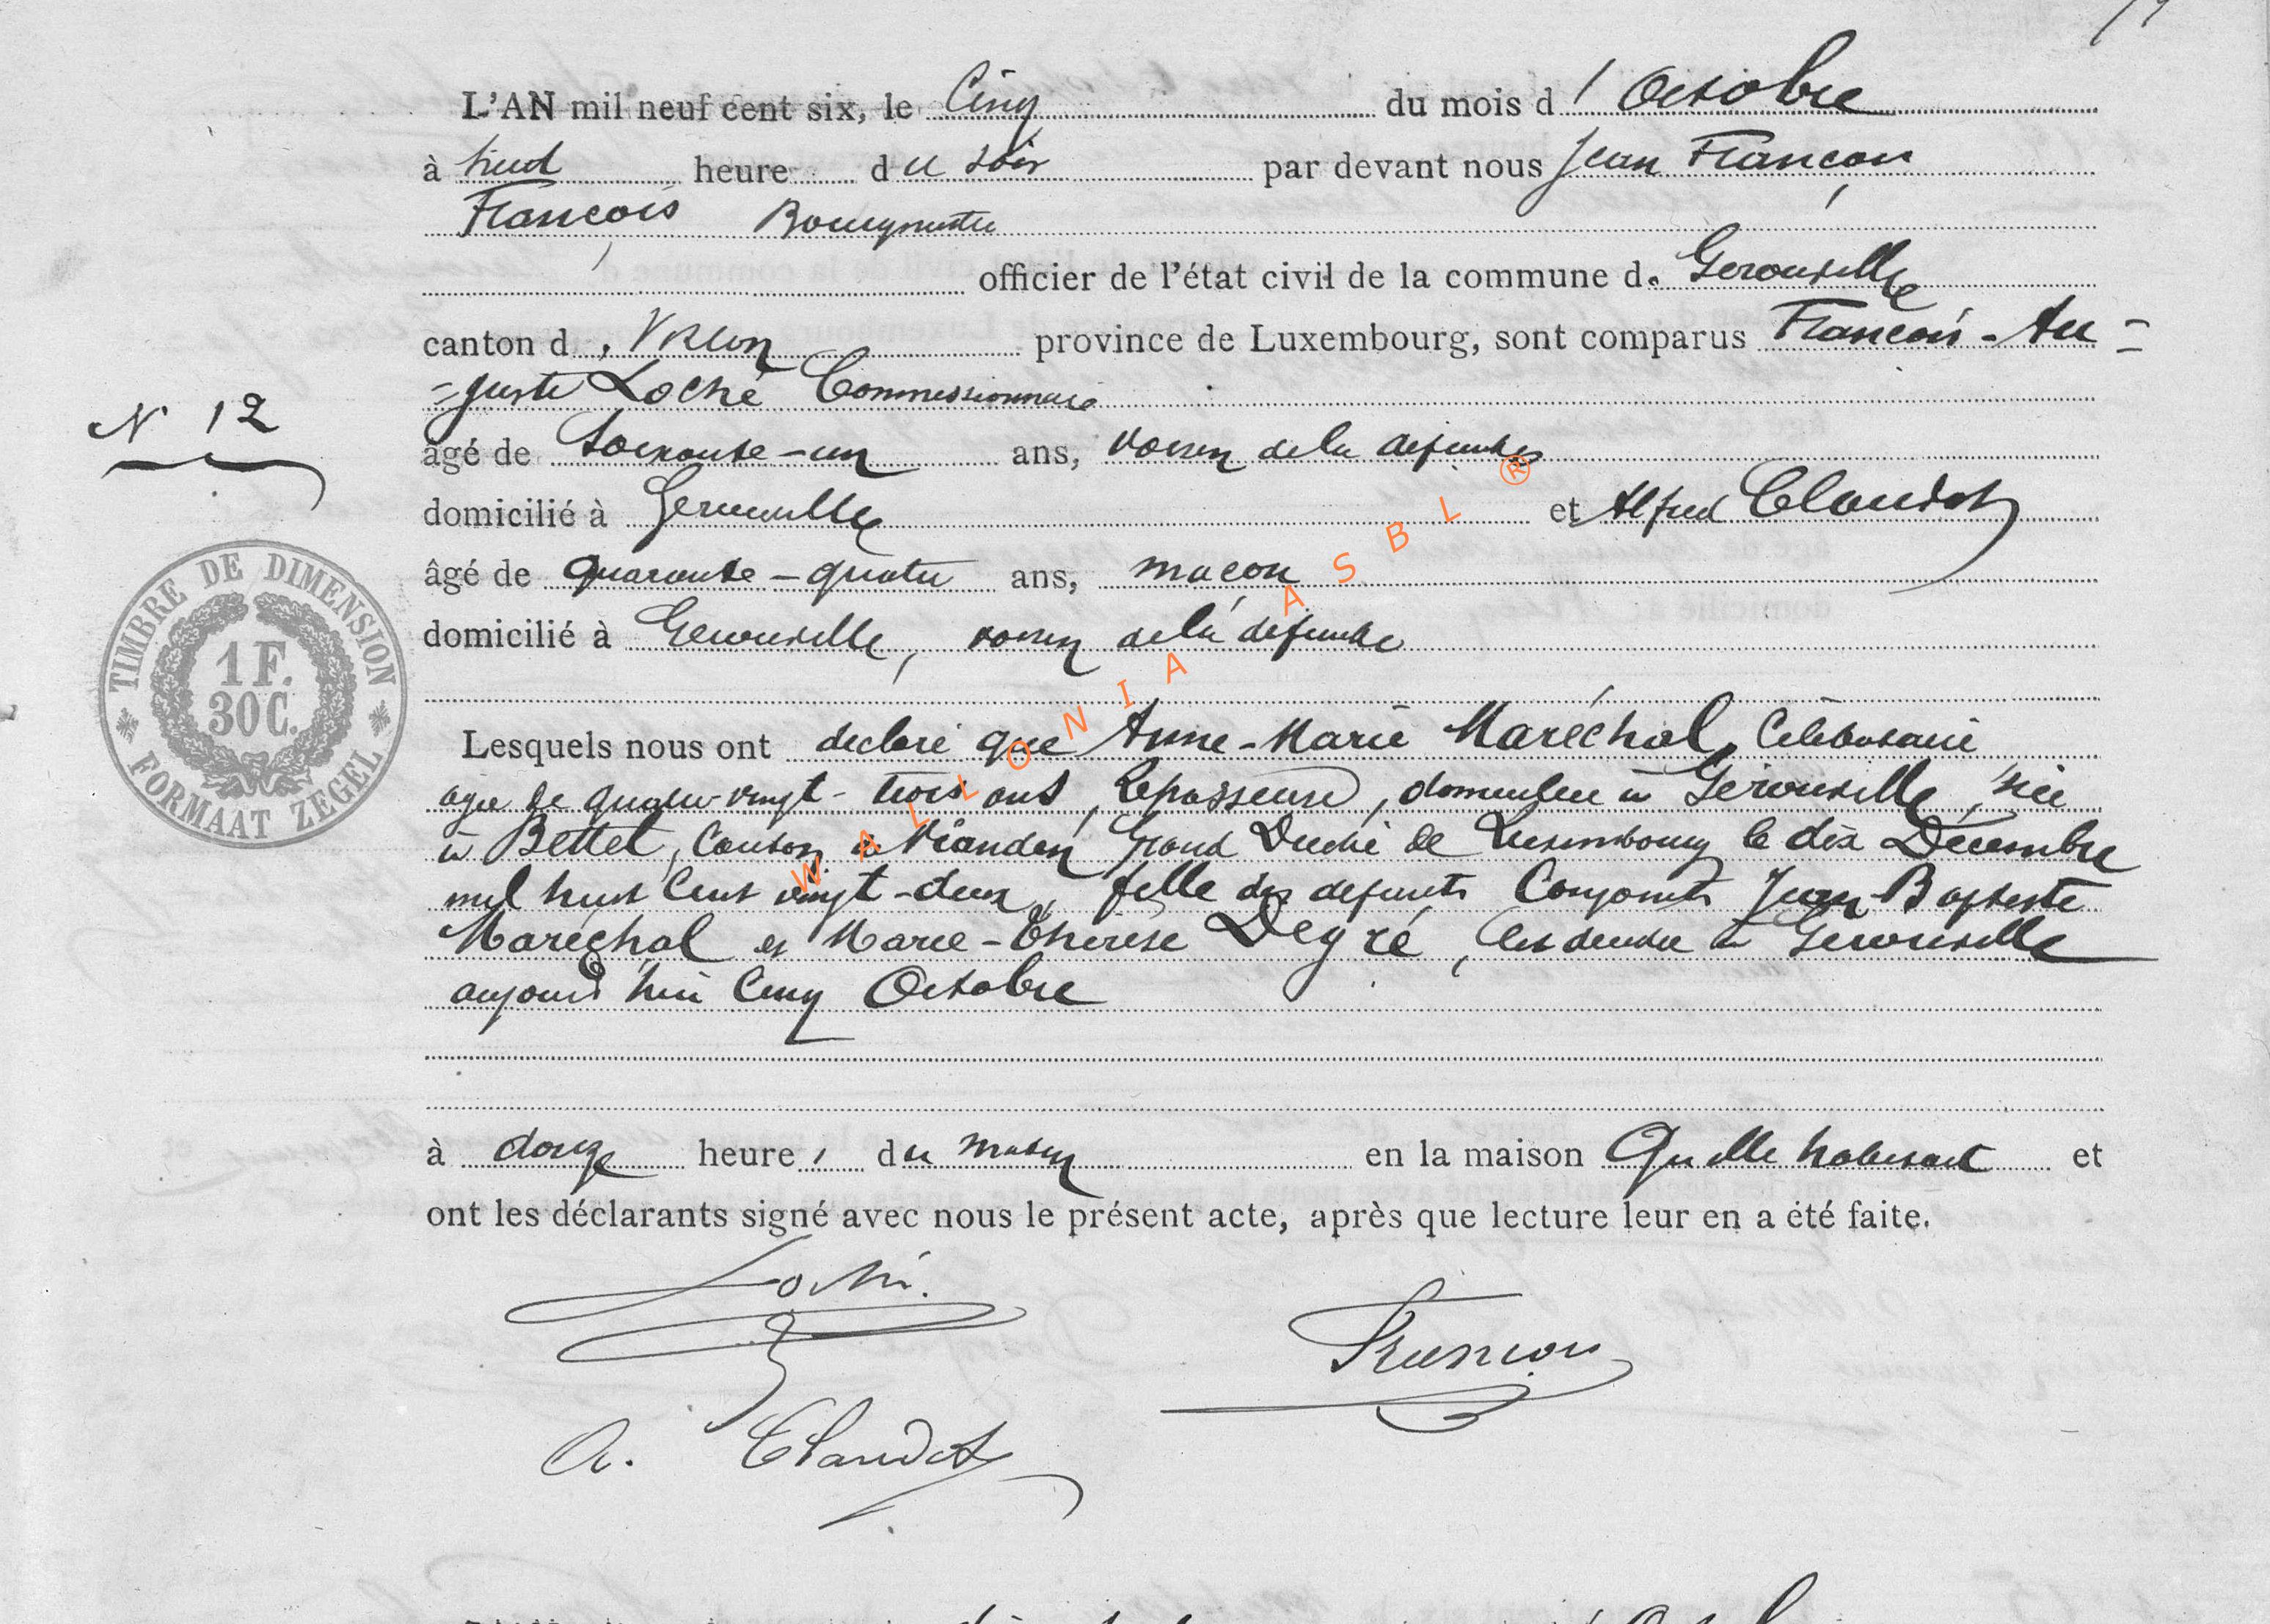 L'AN mil neuf cent six, le Cinq du mois d'Octobre
à huit heure du soir par devant nous Jean François
François Bourgmestre
officier de l'état civil de la commune de Gérouville
canton de Virton province de Luxembourg, sont comparus François-Au=
=guste Loché Commissionnaire
N° 12
âgé de soixante-un ans, voisin de la défunte
domicilié à Gérouville et Alfred Claudot
âgé de quarante-quatre ans, maçon
domicilié à Gérouville, voisin de la défunte
TIMBRE DE DIMENSION
1 F.
30 C.
FORMAAT ZEGEL
Lesquels nous ont déclaré que Anne-Marie Maréchal, Célibataire
agée de quatre-vingt-trois ans, Repasseuse, domiciliée à Gérouville, née
à Bettel, Canton de Vianden Grand Duché de Luxembourg le dix Décembre
mil huit cent vingt-deux, fille des défunts Conjoints Jean-Baptiste
Maréchal et Marie-Thérèse Degré, est décédée à Gérouville
aujourd'hui Cinq Octobre
à douze heures du matin en la maison Qu'elle habitait et
ont les déclarants signé avec nous le présent acte, après que lecture leur en a été faite.
Loché.
François
A. Claudot
WALLONIA ASBL ®